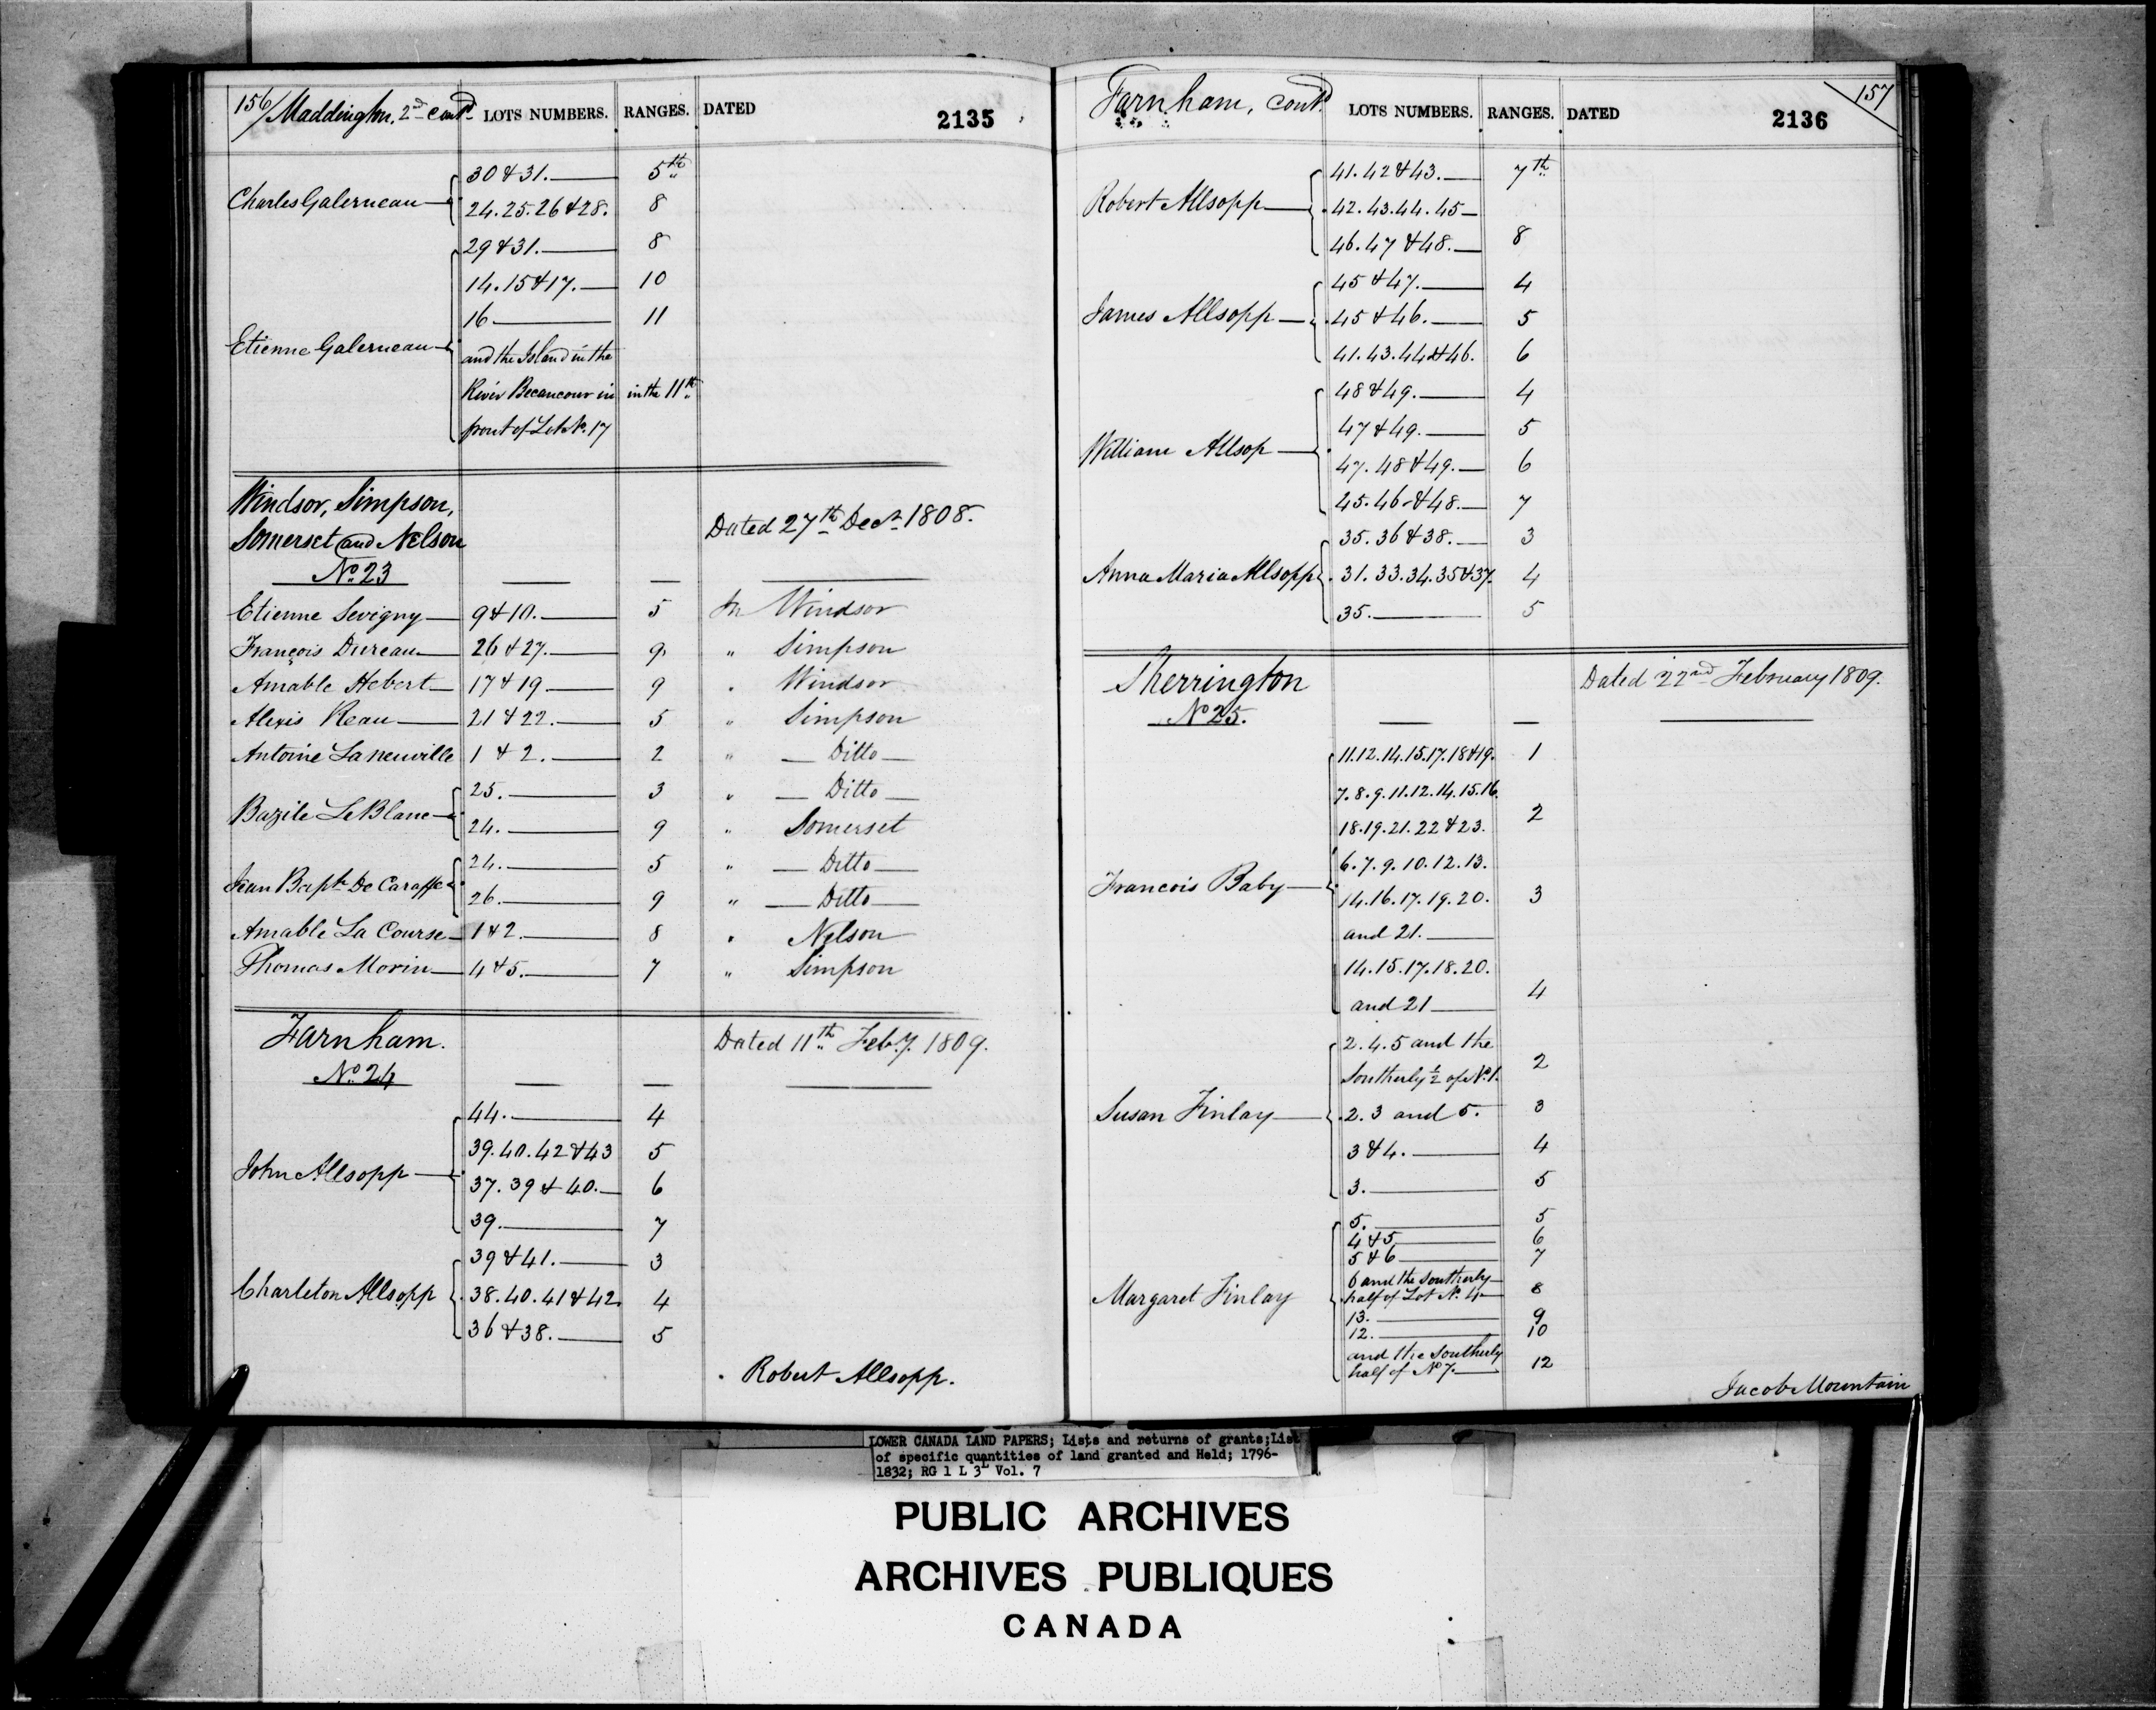 156/ Maddington, 2nd cont.d LOTS NUMBERS. RANGES. DATED 2135
Charles Galerneau 30 & 31. 5th
24. 25. 26 & 28. 8
Etienne Galerneau 29 & 31. 8
14. 15 & 17. 10
16 11
and the Island in the
River Becancour in in the 11th
front of Lot No. 17
Windsor, Simpson,
Somerset and Nelson Dated 27th Decr 1808.
No. 23
Etienne Sevigny 9 & 10. 5 In Windsor
François Dureau 26 & 27. 9 " Simpson
Amable Hebert 17 & 19 9 " Windsor
Alexis Reau 21 & 22. 5 " Simpson
Antoine Laneuville 1 & 2. 2 " Ditto
Bazile LeBlanc 25. 3 " Ditto
24. 9 " Somerset
Jean Bapte De Caraffe 24. 5 " Ditto
26. 9 " Ditto
Amable La Course 1 & 2. 8 " Nelson
Thomas Morin 4 & 5. 7 " Simpson
Farnham. Dated 11th Feby. 1809.
No. 24
John Allsopp 44. 4
39. 40. 42 & 43 5
37. 39 & 40. 6
39. 7
Charleton Allsopp 39 & 41. 3
38. 40. 41 & 42. 4
36 & 38. 5
Robert Allsopp.
Farnham, cont.d LOTS NUMBERS. RANGES. DATED 2136 157
Robert Allsopp 41. 42 & 43. 7th
42. 43. 44. 45
46. 47 & 48. 8
James Allsopp 45 & 47. 4
45 & 46. 5
41. 43. 44 & 46. 6
William Allsop 48 & 49. 4
47 & 49. 5
47. 48 & 49. 6
45. 46 & 48. 7
Anna Maria Allsopp 35. 36 & 38. 3
31. 33. 34. 35 & 37. 4
35. 5
Sherrington Dated 22nd February 1809.
No. 25.
Francois Baby 11. 12. 14. 15. 17. 18 & 19. 1
7. 8. 9. 11. 12. 14. 15. 16.
18. 19. 21. 22 & 23. 2
6. 7. 9. 10. 12. 13.
14. 16. 17. 19. 20. 3
and 21.
14. 15. 17. 18. 20.
and 21 4
Susan Finlay 2. 4. 5 and the
Southerly 1/2 of No. 1. 2
2. 3 and 5. 3
3 & 4. 4
3. 5
Margaret Finlay 5. 5
4 & 5 6
5 & 6 7
6 and the Southerly
half of Lot No. 4 8
13. 9
12. 10
and the Southerly
half of No. 7. 12
Jacob Mountain
LOWER CANADA LAND PAPERS; Lists and returns of grants; List
of specific quantities of land granted and Held; 1796-
1832; RG 1 L 3L Vol. 7
PUBLIC ARCHIVES
ARCHIVES PUBLIQUES
CANADA